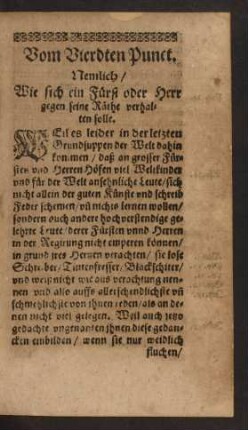 Vom Vierdten Punct.
Nemlich /
Wie sich ein Fürst oder Herr
gegen seine Räthe verhal-
ten solle.
WEil es leider in der letzten
Grundsuppen der Welt dahin
kommen / daß an grosser Für-
sten vnd Herren Höfen viel Weltkinder
vnd für der Welt ansehnliche Leute / sich
nicht allein der guten Künste vnd schreib
Feder schemen / vñ nichts lernen wollen /
sondern auch andere hochverstendige ge-
lehrte Leute / derer Fürsten vnnd Herren
in der Regirung nicht emperen können /
in grund jres Hertzen verachten / sie lose
Schreiber / Tintenfresser / Blackschiter /
vnd weiß nicht wie aus verachtung nen-
nen vnd also auffs allerschendlichste vñ
schmehlichste von jhnen reden / als an de-
nen nicht viel gelegen. Weil auch jetzo
gedachte vngenanten jhnen diese gedan-
cken einbilden / wenn sie nur weidlich
fluchen /